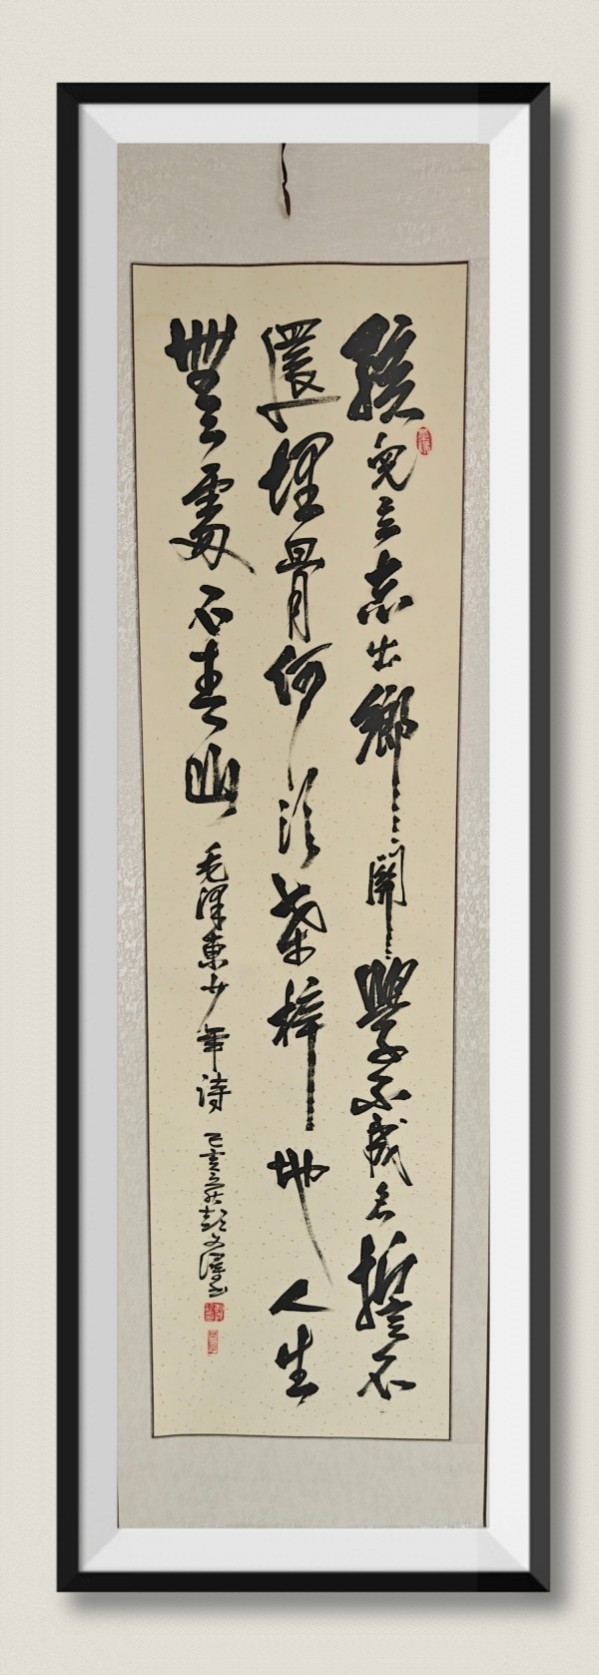 孩兒立志出鄉関學不成名誓不
還埋骨何須桑梓地人生
無處不青山
毛澤東少年詩
己亥之秋彭文澤書